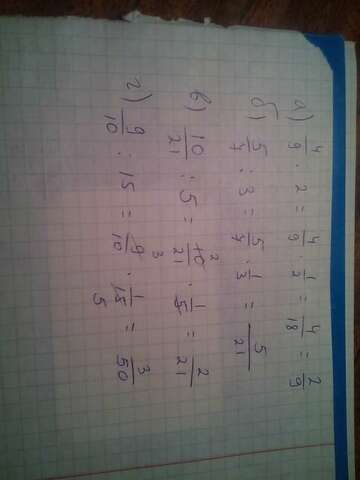 а) 4/9 : 2 = 4/9 · 1/2 = 4/18 = 2/9
б) 5/7 : 3 = 5/7 · 1/3 = 5/21
в) 10/21 : 5 = 10/21 2 · 1/5 = 2/21
г) 9/10 : 15 = 9/10 3 · 1/15 5 = 3/50